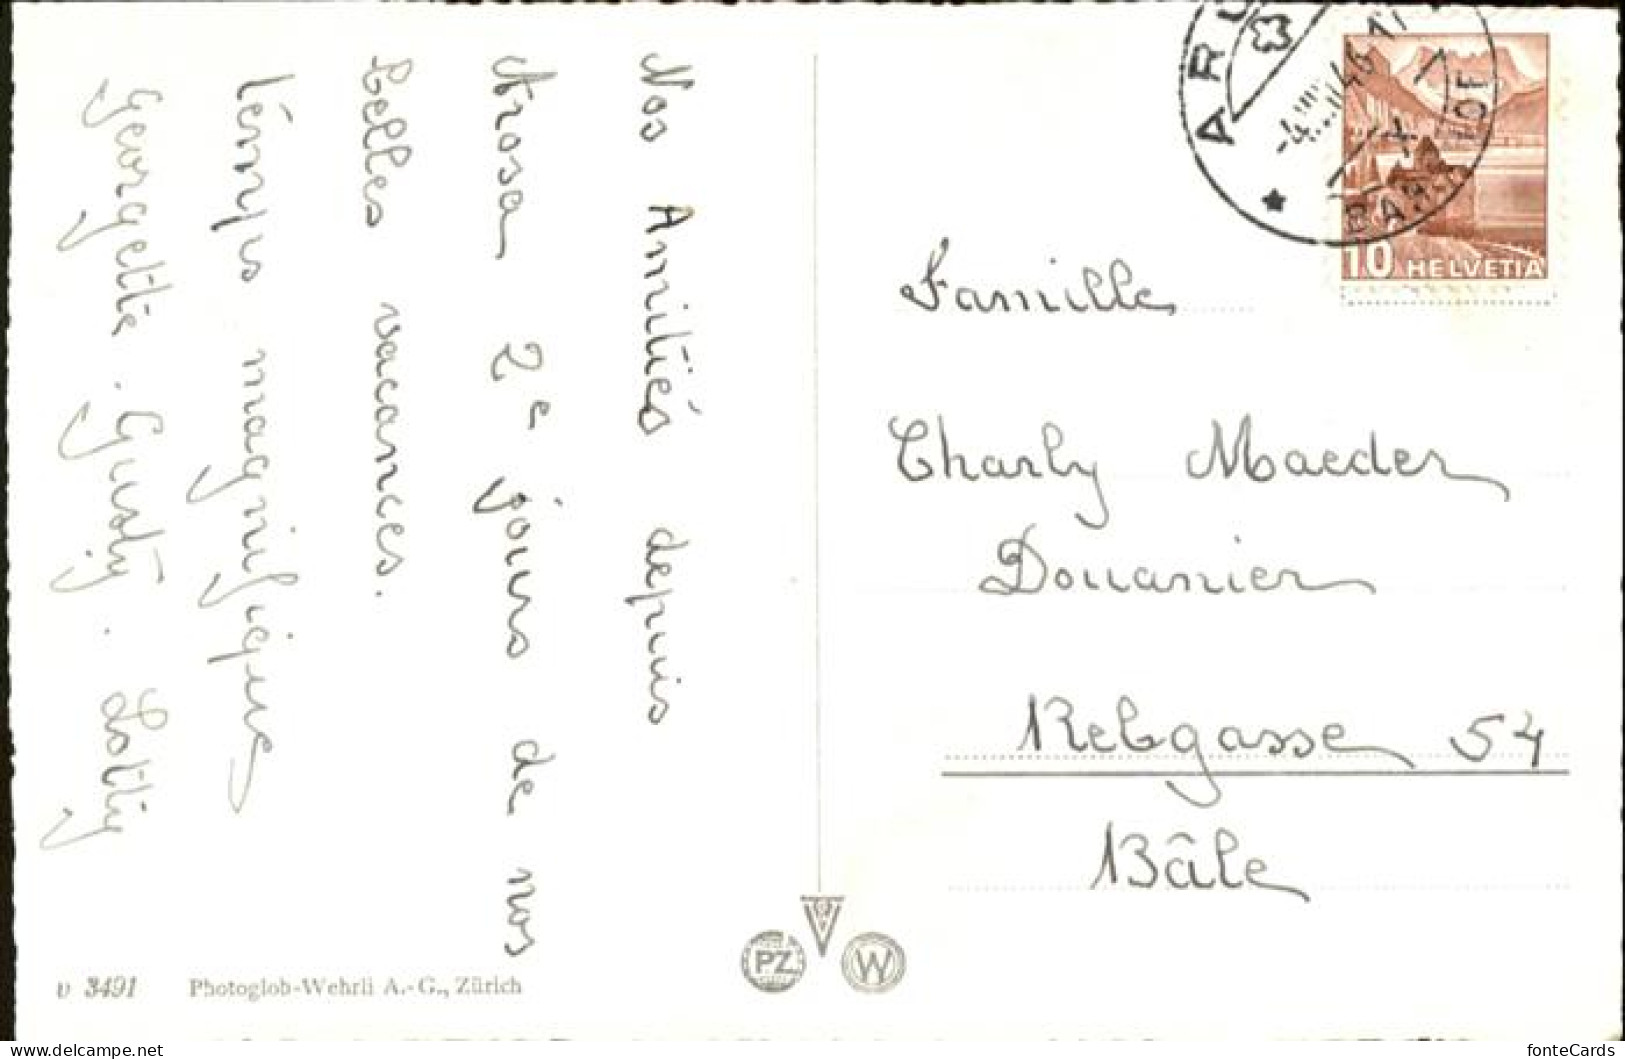 Nos Amitiés depuis
Arosa 2e jours de nos
belles vacances.
Temps magnifique
Georgette. Gusty. Lotty
Famille
Charly Maeder
Douanier
Rebgasse 54
Bâle
-4.VIII.46.17
10 HELVETIA
PZ
W
v 3491 Photoglob-Wehrli A.-G., Zürich
www.delcampe.net
fonteCards